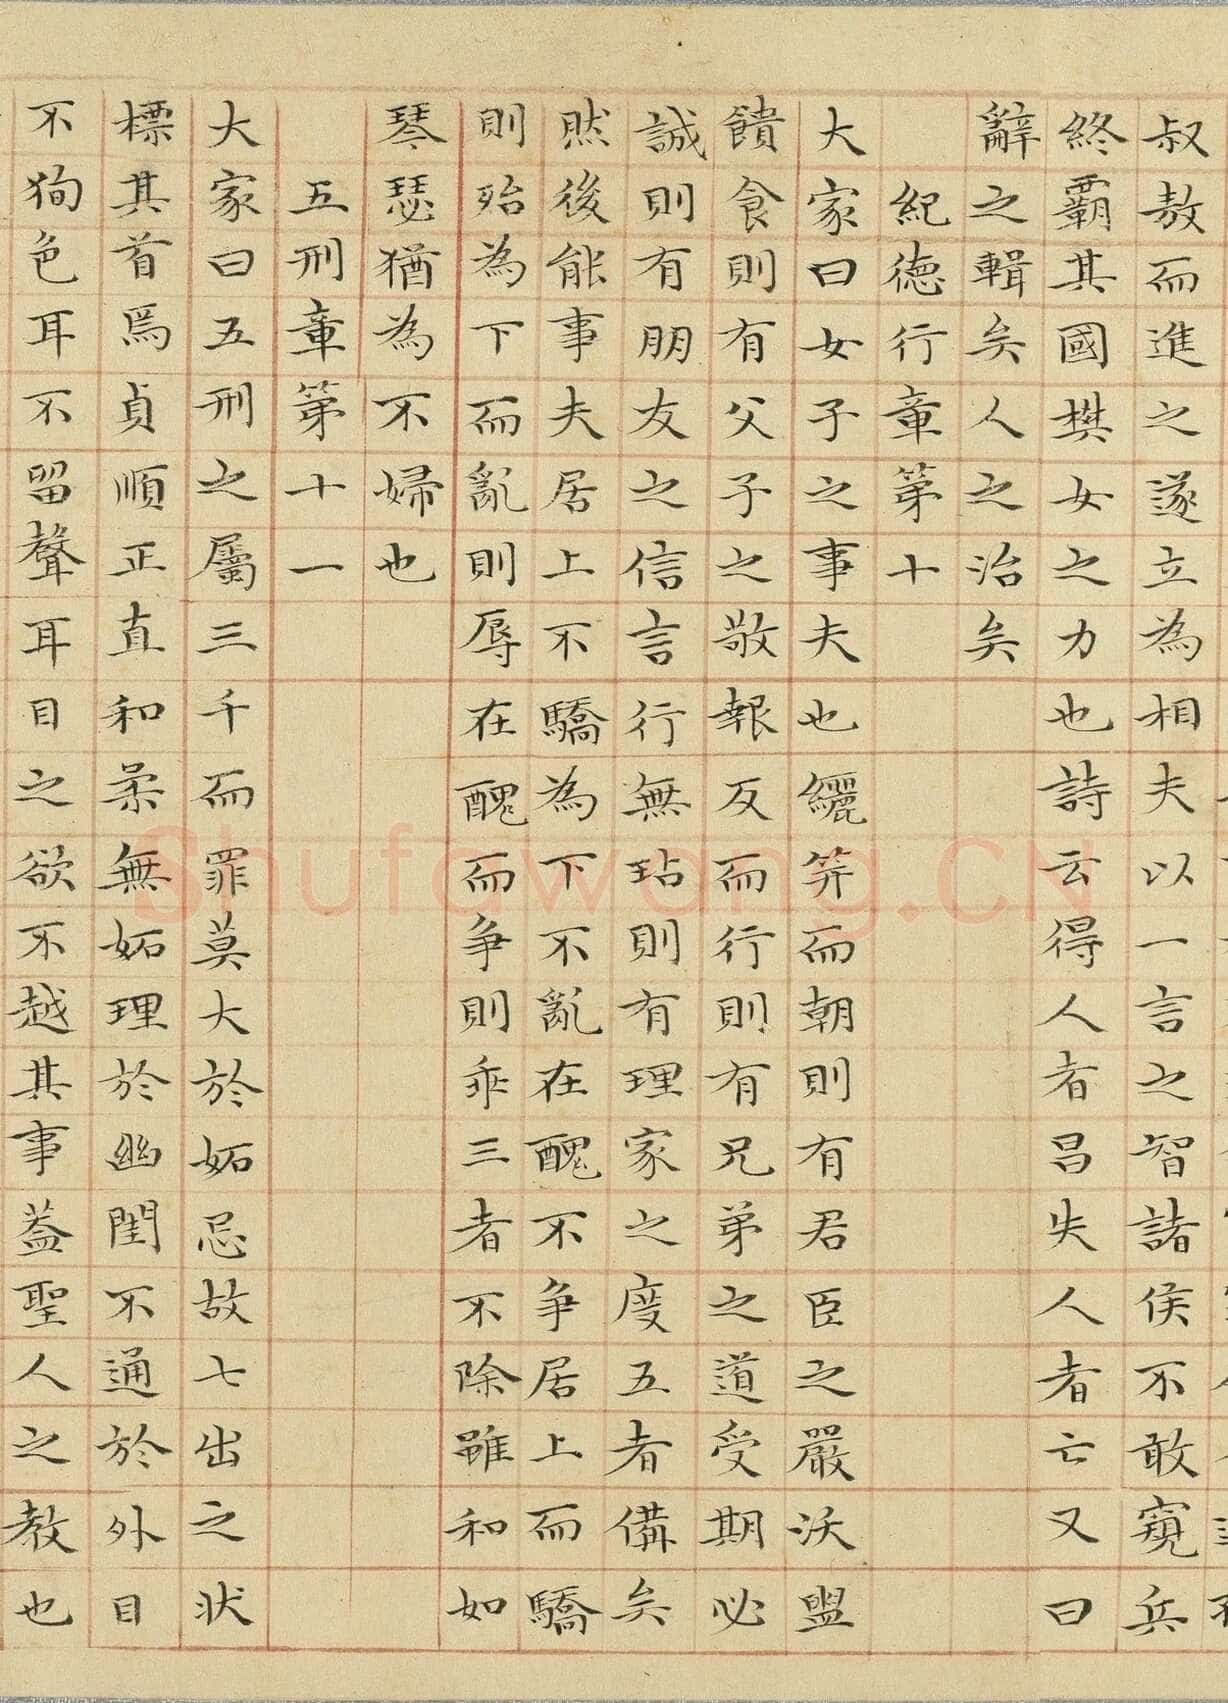 叔敖而進之遂立為相夫以一言之智諸侯不敢窺兵
終霸其國樊女之力也詩云得人者昌失人者亡又曰
辭之輯矣人之治矣
紀德行章第十
大家曰女子之事夫也纚笄而朝則有君臣之嚴沃盥
饋食則有父子之敬報反而行則有兄弟之道受期必
誠則有朋友之信言行無玷則有理家之度五者備矣
然後能事夫居上不驕為下不亂在醜不爭居上而驕
則殆為下而亂則辱在醜而爭則乖三者不除雖和如
琴瑟猶為不婦也
五刑章第十一
大家曰五刑之屬三千而罪莫大於妬忌故七出之狀
標其首焉貞順正直和柔無妬理於幽閨不通於外目
不狥色耳不留聲耳目之欲不越其事蓋聖人之教也
Shufawang.CN